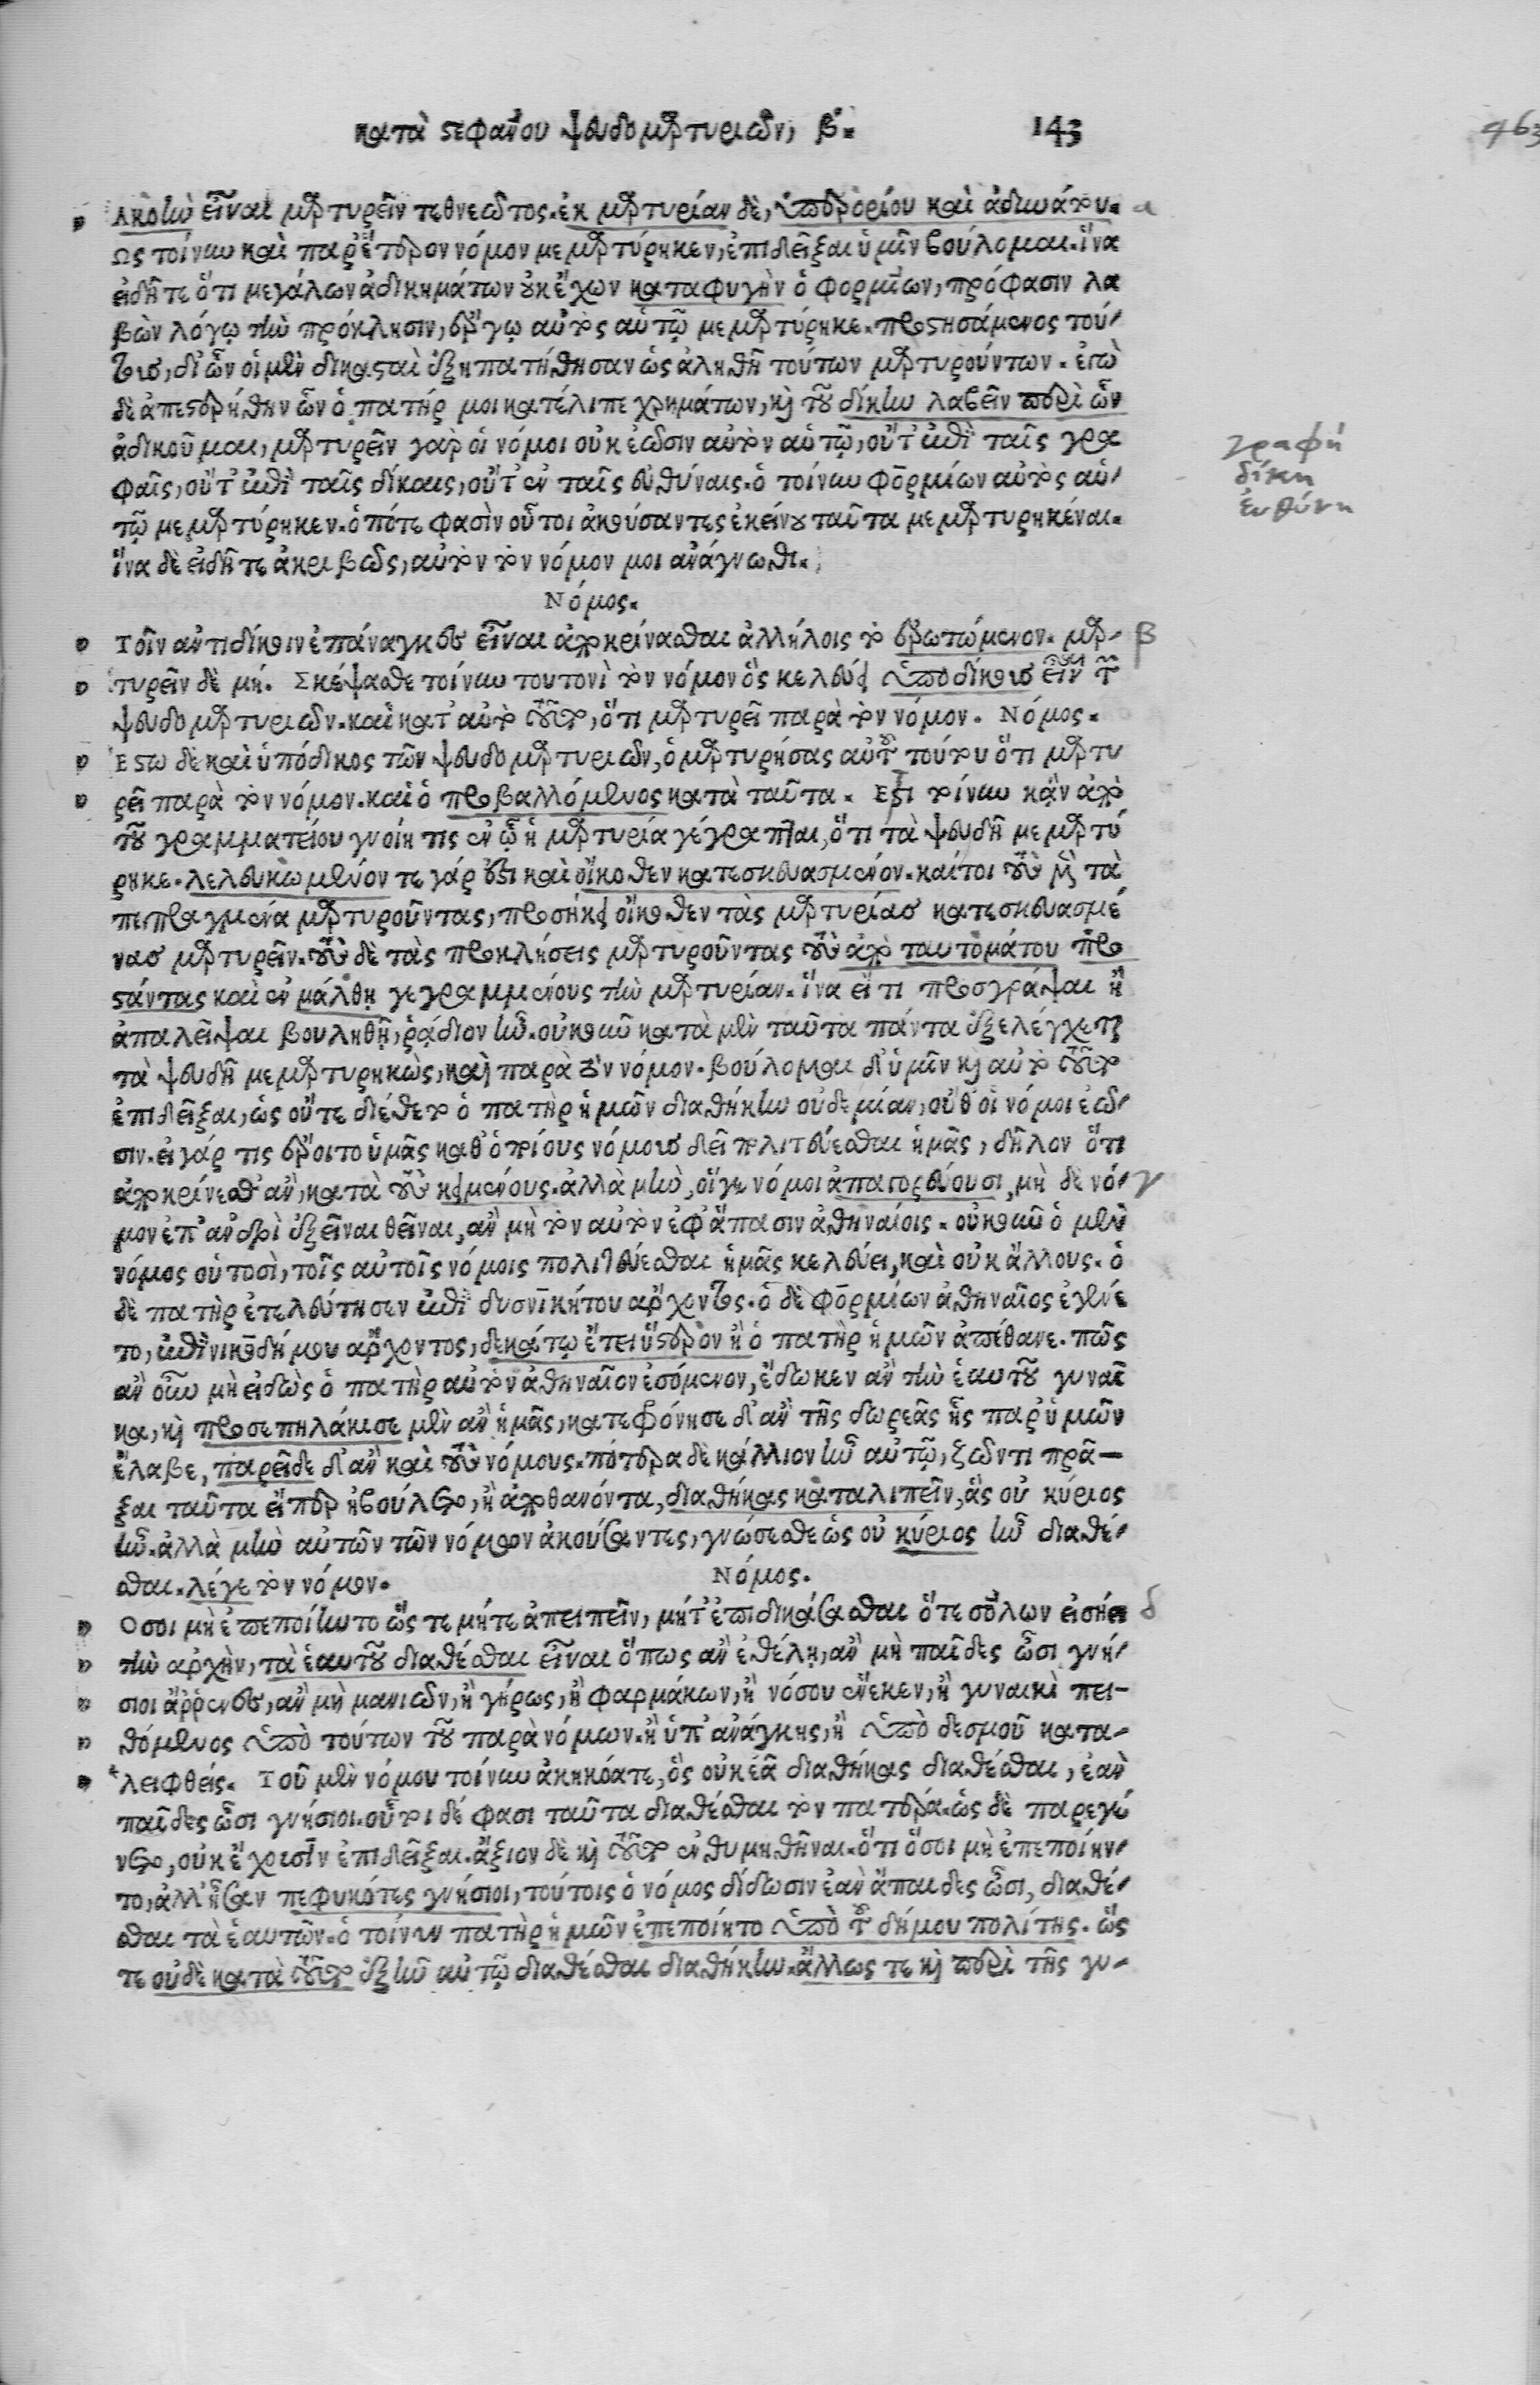 κατὰ στεφάνου ψευδομαρτυριῶν, β.
143
463
Ακοὴν εἶναι μαρτυρεῖν τεθνεῶτος. ἐκμαρτυρίαν δὲ, ὑπερορίου καὶ ἀδυνάτου. α
Ως τοίνυν καὶ παρ' ἕτερον νόμον μεμαρτύρηκεν, ἐπιδεῖξαι ὑμῖν βούλομαι. ἵνα
εἰδῆτε ὅτι μεγάλων ἀδικημάτων οὐκ ἔχων καταφυγὴν ὁ φορμίων, πρόφασιν λα
βὼν λόγῳ τὴν πρόκλησιν, ἔργῳ αὐτὸς αὑτῷ μεμαρτύρηκε. προστησάμενος τού-
τους, δι' ὧν οἱ μὲν δικασταὶ ἐξηπατήθησαν ὡς ἀληθῆ τούτων μαρτυρούντων. ἐγὼ
δὲ ἀπεστερήθην ὧν ὁ πατήρ μοι κατέλιπε χρημάτων, καὶ τοῦ δίκην λαβεῖν περὶ ὧν
ἀδικοῦμαι, μαρτυρεῖν γὰρ οἱ νόμοι οὐκ ἐῶσιν αὐτὸν αὑτῷ, οὔτ' ἐπὶ ταῖς γρα
φαῖς, οὔτ' ἐπὶ ταῖς δίκαις, οὔτ' ἐν ταῖς εὐθύναις. ὁ τοίνυν φορμίων αὐτὸς αὑ-
τῷ μεμαρτύρηκεν. ὁπότε φασὶν οὗτοι ἀκούσαντες ἐκείνου ταῦτα μεμαρτυρηκέναι.
ἵνα δὲ εἰδῆτε ἀκριβῶς, αὐτὸν τὸν νόμον μοι ἀνάγνωθι.
γραφή
δίκη
εὐθύνη
Νόμος.
Τοῖν ἀντιδίκοιν ἐπάναγκες εἶναι ἀποκρίνασθαι ἀλλήλοις τὸ ἐρωτώμενον. μαρ- β
τυρεῖν δὲ μή. Σκέψασθε τοίνυν τουτονὶ τὸν νόμον ὃς κελεύει ὑποδίκους εἶναι τῶν
ψευδομαρτυριῶν. καὶ κατ' αὐτὸ τοῦτο, ὅτι μαρτυρεῖ παρὰ τὸν νόμον. Νόμος.
Εστω δὲ καὶ ὑπόδικος τῶν ψευδομαρτυριῶν, ὁ μαρτυρήσας αὐτοῦ τούτου ὅτι μαρτυ
ρεῖ παρὰ τὸν νόμον. καὶ ὁ προβαλλόμενος κατὰ ταῦτα. Ετι τοίνυν κἂν ἀπὸ
τοῦ γραμματείου γνοίη τις ἐν ᾧ ἡ μαρτυρία γέγραπται, ὅτι τὰ ψευδῆ μεμαρτύ
ρηκε. λελευκωμένον τε γάρ ἐστι καὶ οἴκοθεν κατεσκευασμένον. καίτοι τοὺς μὲν τὰ
πεπραγμένα μαρτυροῦντας, προσήκει οἴκοθεν τὰς μαρτυρίας κατεσκευασμέ
νας μαρτυρεῖν. τοὺς δὲ τὰς προκλήσεις μαρτυροῦντας τοὺς ἀπὸ ταυτομάτου προ
στάντας καὶ ἐν μάλθῃ γεγραμμένους τὴν μαρτυρίαν. ἵνα εἴ τι προσγράψαι ἢ
ἀπαλεῖψαι βουληθῇ, ῥᾴδιον ἦν. οὐκοῦν κατὰ μὲν ταῦτα πάντα ἐξελέγχεται
τὰ ψευδῆ μεμαρτυρηκὼς, καὶ παρὰ τὸν νόμον. βούλομαι δ' ὑμῖν καὶ αὐτὸ τοῦτο
ἐπιδεῖξαι, ὡς οὔτε διέθετο ὁ πατὴρ ἡμῶν διαθήκην οὐδεμίαν, οὔθ' οἱ νόμοι ἐῶ-
σιν. εἰ γάρ τις ἔροιτο ὑμᾶς καθ' ὁποίους νόμους δεῖ πολιτεύεσθαι ἡμᾶς, δῆλον ὅτι
ἀποκρίνεσθ' ἂν, κατὰ τοὺς κειμένους. ἀλλὰ μὴν, οἵγε νόμοι ἀπαγορεύουσι, μὴ δὲ νό- γ
μον ἐπ' ἀνδρὶ ἐξεῖναι θεῖναι, ἂν μὴ τὸν αὐτὸν ἐφ' ἅπασιν ἀθηναίοις. οὐκοῦν ὁ μὲν
νόμος οὑτοσὶ, τοῖς αὐτοῖς νόμοις πολιτεύεσθαι ἡμᾶς κελεύει, καὶ οὐκ ἄλλους. ὁ
δὲ πατὴρ ἐτελεύτησεν ἐπὶ δυσνικήτου ἄρχοντος. ὁ δὲ φορμίων ἀθηναῖος ἐγένε
το, ἐπὶ νικοδήμου ἄρχοντος, δεκάτῳ ἔτει ὕστερον ἢ ὁ πατὴρ ἡμῶν ἀπέθανε. πῶς
ἂν οὖν μὴ εἰδὼς ὁ πατὴρ αὐτὸν ἀθηναῖον ἐσόμενον, ἔδωκεν ἂν τὴν ἑαυτοῦ γυναῖ
κα, καὶ προσεπηλάκισε μὲν ἂν ἡμᾶς, κατεφρόνησε δ' ἂν τῆς δωρεᾶς ἧς παρ' ὑμῶν
ἔλαβε, παρεῖδε δ' ἂν καὶ τοὺς νόμους. πότερα δὲ κάλλιον ἦν αὐτῷ, ζῶντι πρᾶ-
ξαι ταῦτα εἴπερ ἠβούλετο, ἢ ἀποθανόντα, διαθήκας καταλιπεῖν, ἃς οὐ κύριος
ἦν. ἀλλὰ μὴν αὐτῶν τῶν νόμων ἀκούσαντες, γνώσεσθε ὡς οὐ κύριος ἦν διαθέ-
σθαι. λέγε τὸν νόμον. Νόμος.
Οσοι μὴ ἐπεποίηντο ὥς τε μήτε ἀπειπεῖν, μήτ' ἐπιδικάσασθαι ὅτε σόλων εἰσῄει δ
τὴν ἀρχὴν, τὰ ἑαυτοῦ διαθέσθαι εἶναι ὅπως ἂν ἐθέλῃ, ἂν μὴ παῖδες ὦσι γνή-
σιοι ἄῤῥενες, ἂν μὴ μανιῶν, ἢ γήρως, ἢ φαρμάκων, ἢ νόσου ἕνεκεν, ἢ γυναικὶ πει-
θόμενος ὑπὸ τούτων τοῦ παρὰ νόμων. ἢ ὑπ' ἀνάγκης, ἢ ὑπὸ δεσμοῦ κατα-
λειφθείς. Τοῦ μὲν νόμου τοίνυν ἀκηκόατε, ὃς οὐκ ἐᾷ διαθήκας διαθέσθαι, ἐὰν
παῖδες ὦσι γνήσιοι. οὗτοι δέ φασι ταῦτα διαθέσθαι τὸν πατέρα. ὡς δὲ παρεγέ
νετο, οὐκ ἔχουσιν ἐπιδεῖξαι. ἄξιον δὲ καὶ τοῦτο ἐνθυμηθῆναι. ὅτι ὅσοι μὴ ἐπεποίην-
το, ἀλλ' ἦσαν πεφυκότες γνήσιοι, τούτοις ὁ νόμος δίδωσιν ἐὰν ἄπαιδες ὦσι, διαθέ-
σθαι τὰ ἑαυτῶν. ὁ τοίνυν πατὴρ ἡμῶν ἐπεποίητο ὑπὸ τοῦ δήμου πολίτης. ὥς
τε οὐδὲ κατὰ τοῦτο ἐξῆν αὐτῷ διαθέσθαι διαθήκην. ἄλλως τε καὶ περὶ τῆς γυ-